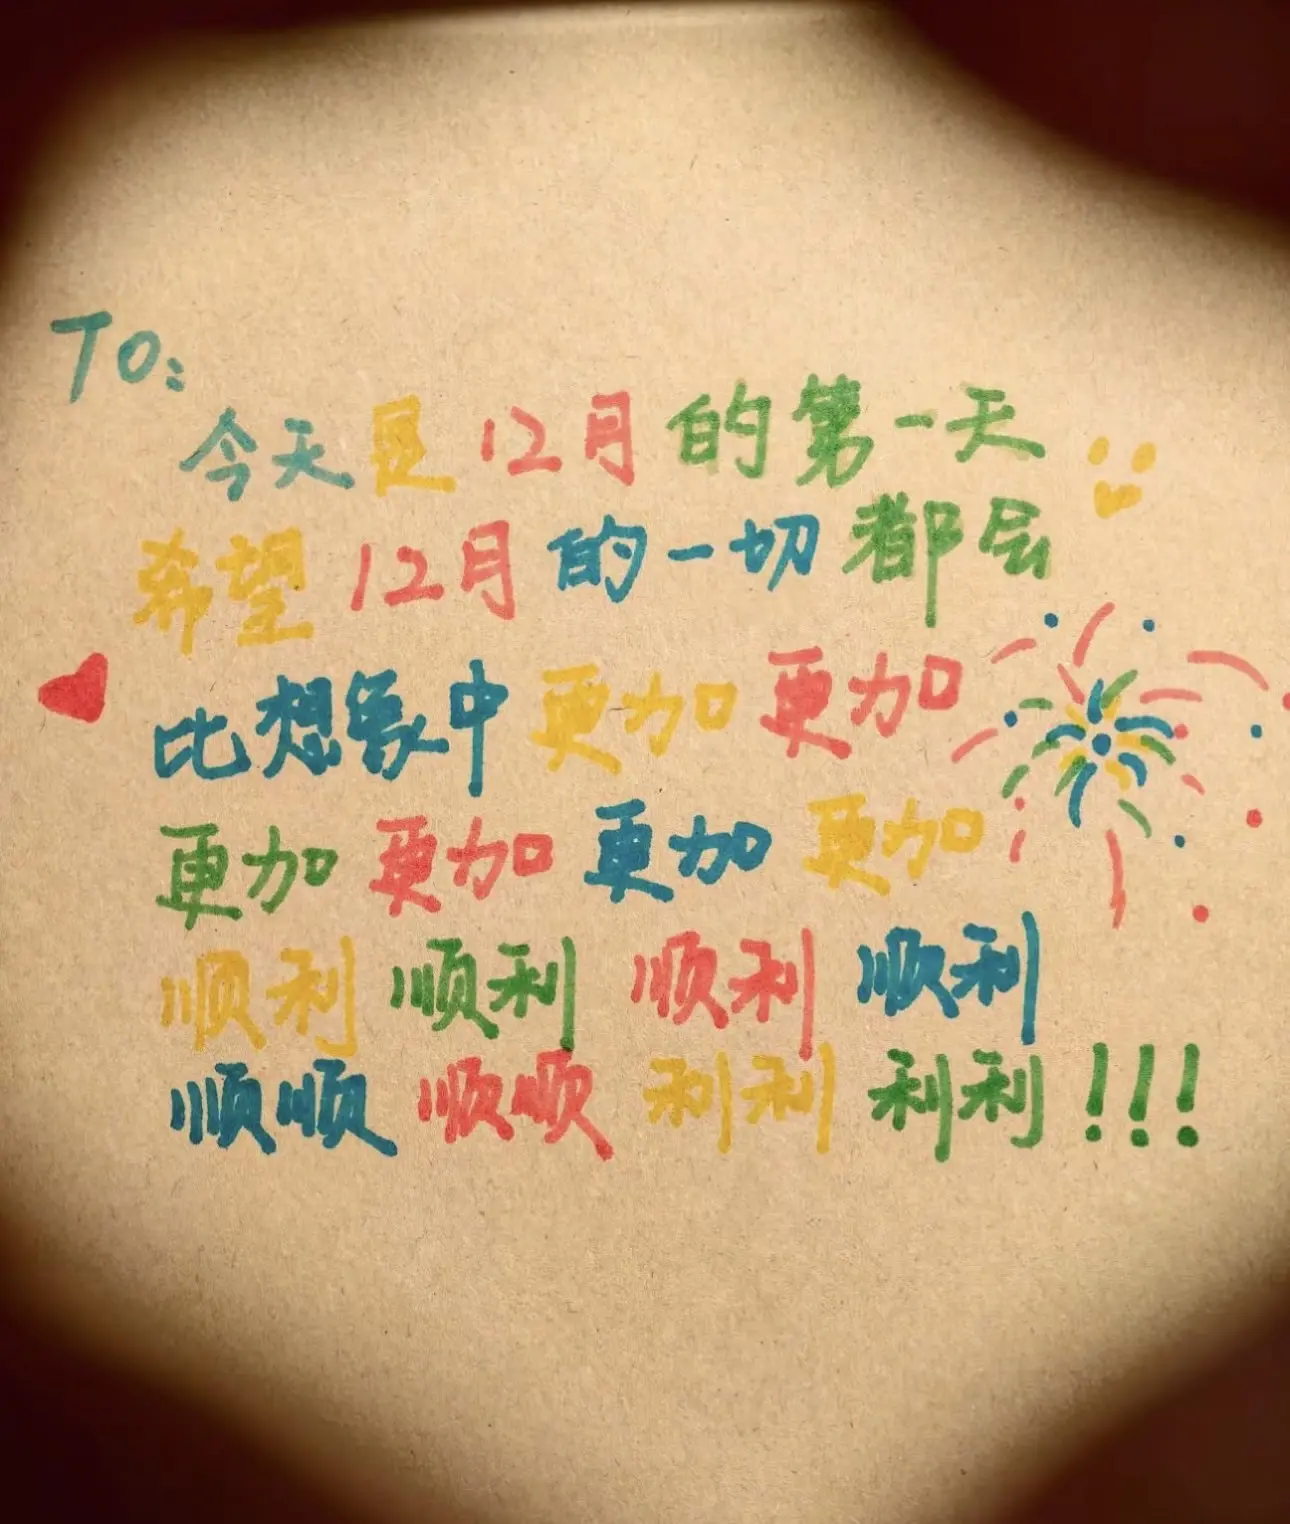 To:
今天是12月的第一天
希望12月的一切都会
比想象中更加更加
更加更加更加更加
顺利顺利顺利顺利
顺顺顺顺利利利利!!!